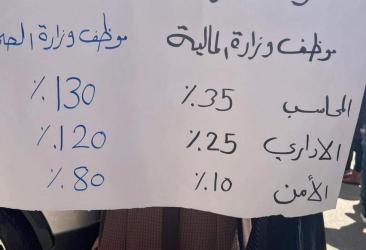 موظف وزارة المالية موظف وزارة الص
المحاسب ٪35 ٪130
الاداري ٪25 ٪120
الأمن ٪10 ٪80